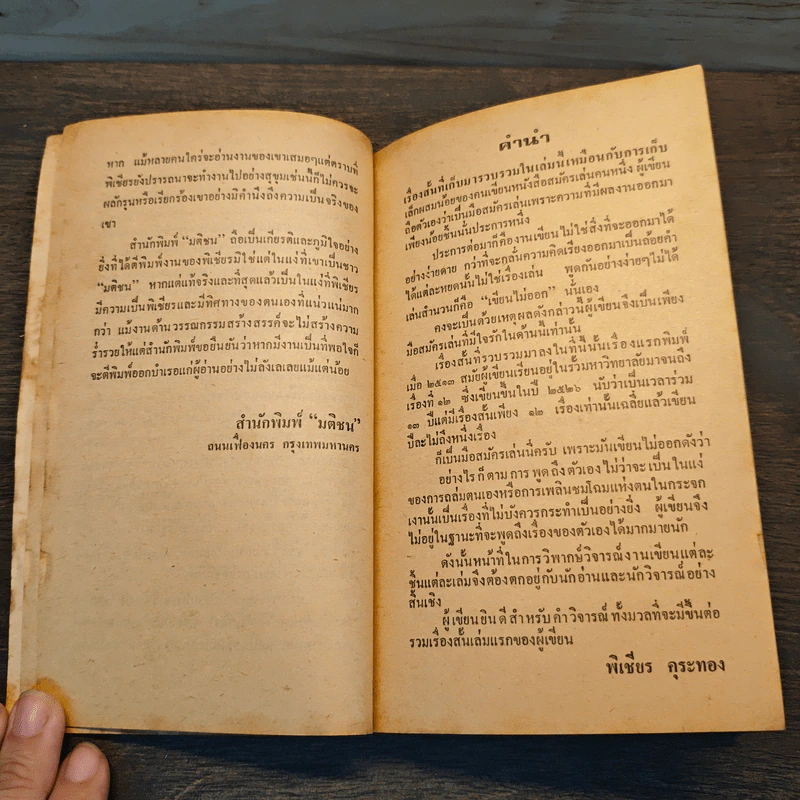 หาก แม้หลายคนใคร่จะอ่านงานของเขาเสมอๆแต่ตราบที่
พิเชียรยังปรารถนาจะทำงานไปอย่างสุขุมเช่นนี้ก็ไม่ควรจะ
ผลักรุนหรือเรียกร้องเขาอย่างมิคำนึงถึงความเป็นจริงของ
เขา
สำนักพิมพ์ “มติชน” ถือเป็นเกียรติและภูมิใจอย่าง
ยิ่งที่ได้ตีพิมพ์งานของพิเชียรมิใช่แต่ในแง่ที่เขาเป็นชาว
“มติชน” หากแต่แท้จริงและที่สุดแล้วเป็นในแง่ที่พิเชียร
มีความเป็นพิเชียรและมีทิศทางของตนเองที่แน่วแน่มาก
กว่า แม้งานด้านวรรณกรรมสร้างสรรค์จะไม่สร้างความ
ร่ำรวยให้แต่สำนักพิมพ์ขอยืนยันว่าหากมีงานเป็นที่พอใจก็
จะตีพิมพ์ออกบำเรอแก่ผู้อ่านอย่างไม่ลังเลเลยแม้แต่น้อย
สำนักพิมพ์ “มติชน”
ถนนเฟื่องนคร กรุงเทพมหานคร
คำนำ
เรื่องสั้นที่เก็บมารวบรวมในเล่มนี้เหมือนกับการเก็บ
เล็กผสมน้อยของคนเขียนหนังสือสมัครเล่นคนหนึ่ง ผู้เขียน
ถือตัวเองว่าเป็นมือสมัครเล่นเพราะความที่มีผลงานออกมา
เพียงน้อยชิ้นนั่นประการหนึ่ง
ประการต่อมาก็คืองานเขียนไม่ใช่สิ่งที่จะออกมาได้
อย่างง่ายดาย กว่าที่จะกลั่นความคิดเรียงออกมาเป็นถ้อยคำ
ได้แต่ละหยดนั้นไม่ใช่เรื่องเล่น พูดกันอย่างง่ายๆไม่ได้
เล่นสำนวนก็คือ “เขียนไม่ออก” นั่นเอง
คงจะเป็นด้วยเหตุผลดังกล่าวนี้ผู้เขียนจึงเป็นเพียง
มือสมัครเล่นที่มีใจรักในด้านนี้เท่านั้น
เรื่องสั้นที่รวบรวมมาลงในที่นี้นั้นเรื่องแรกพิมพ์
เมื่อ ๒๕๑๓ สมัยผู้เขียนเรียนอยู่ในรั้วมหาวิทยาลัยมาจนถึง
เรื่องที่ ๑๒ ซึ่งเขียนขึ้นในปี ๒๕๒๖ นับว่าเป็นเวลาร่วม
๑๓ ปีแต่มีเรื่องสั้นเพียง ๑๒ เรื่องเท่านั้นเฉลี่ยแล้วเขียน
ปีละไม่ถึงหนึ่งเรื่อง
ก็เป็นมือสมัครเล่นนี่ครับ เพราะมันเขียนไม่ออกดังว่า
อย่างไรก็ตามการพูดถึงตัวเองไม่ว่าจะเป็นในแง่
ของการถล่มตนเองหรือการเพลินชมโฉมแห่งตนในกระจก
เงานั้นเป็นเรื่องที่ไม่บังควรกระทำเป็นอย่างยิ่ง ผู้เขียนจึง
ไม่อยู่ในฐานะที่จะพูดถึงเรื่องของตัวเองได้มากมายนัก
ดังนั้นหน้าที่ในการวิพากษ์วิจารณ์งานเขียนแต่ละ
ชิ้นแต่ละเล่มจึงต้องตกอยู่กับนักอ่านและนักวิจารณ์อย่าง
สิ้นเชิง
ผู้เขียนยินดีสำหรับคำวิจารณ์ทั้งมวลที่จะมีขึ้นต่อ
รวมเรื่องสั้นเล่มแรกของผู้เขียน
พิเชียร คุระทอง